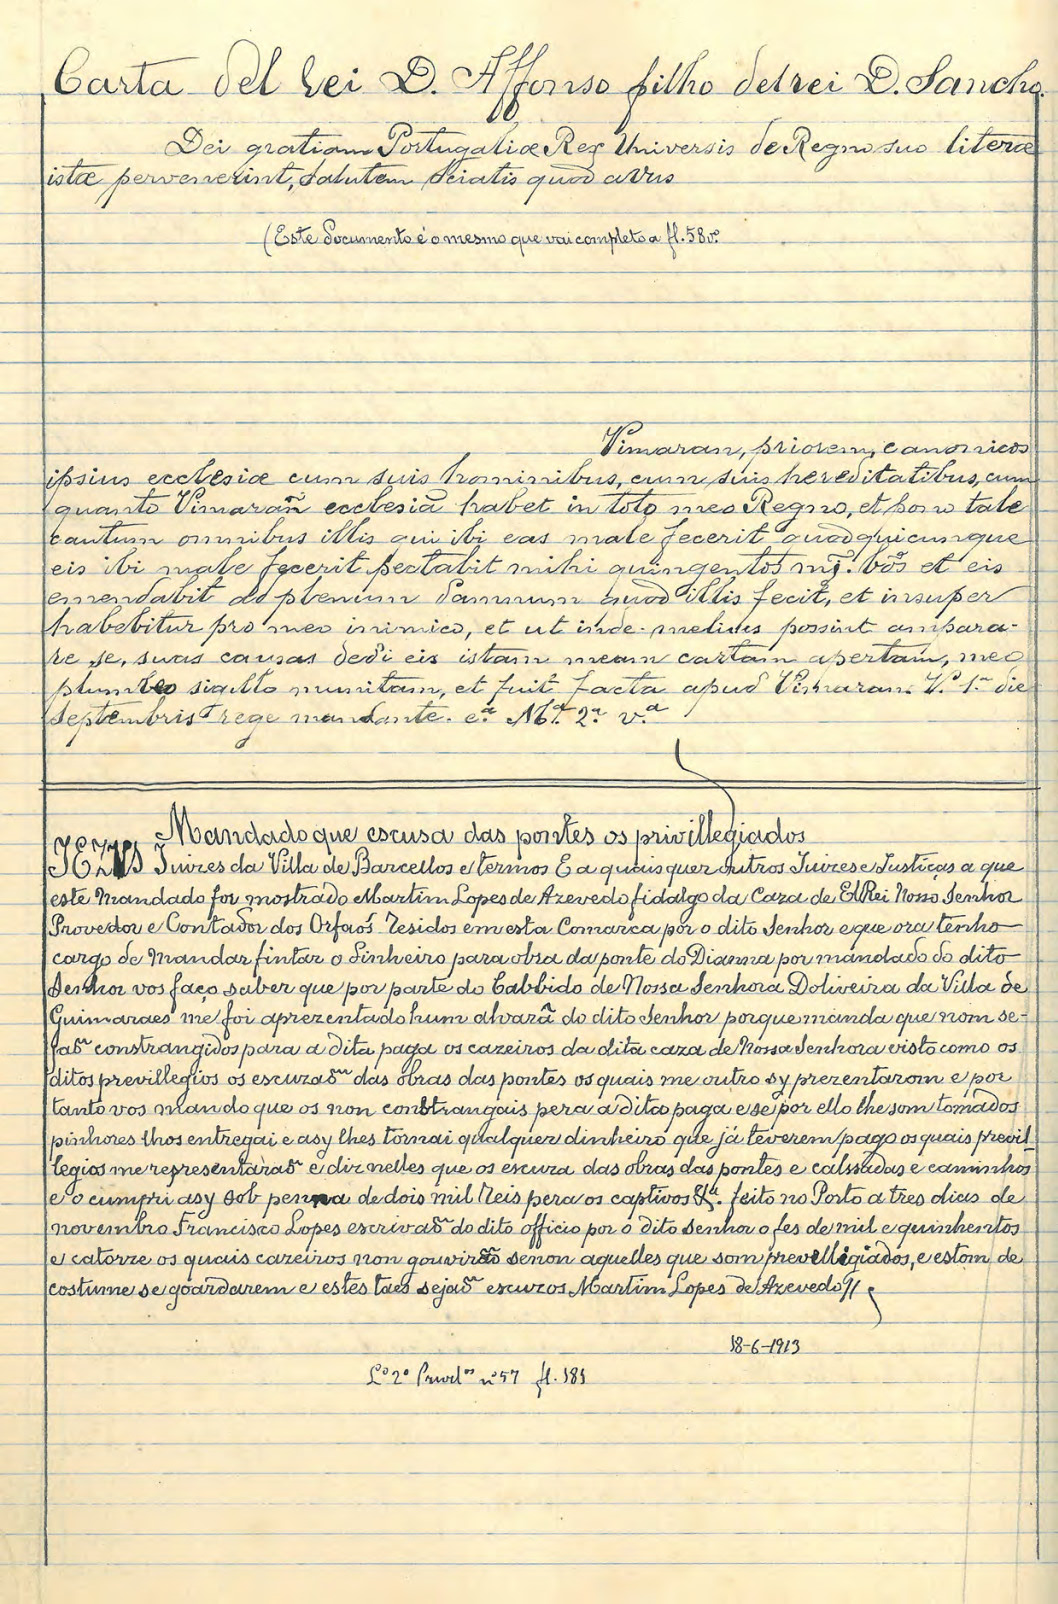 Carta del Rei D. Affonso filho del rei D. Sancho.
Dei gratiam Portugaliæ Rex Universis de Regno suo literæ
istæ pervenerint, salutem Sciatis quod avus
(Este documento é o mesmo que vai completo a fl. 58 vº
Vimaran, priorem, canonicos
ipsius ecclesiæ cum suis hominibus, cum suis hereditatibus, cum
quanto Vimarañ ecclesiã habet in toto meo Regno, et pono tale
cautum omnibus illis qui ibi eas male fecerit quod quicunque
eis ibi male fecerit pectabit mihi quingentos
et eis
emendabit ad plenum damnum quod illis fecit, et insuper
habebitur pro meo inimico, et ut inde melius possint ampara-
re se, suas causas dedi eis istam meam cartam apertam, meo
plumbeo sigillo munitam, et fuit facta apud Vimaran. V. 1.ª die
Septembris rege mandante. e.ª M.ª 2.ª v.ª
Mandado que escusa das pontes os privillegiados
JEZUS Juizes da Villa de Barcellos e termos E a quaisquer outros Juizes e Justiças a que
este Mandado for mostrado Martim Lopes de Azevedo fidalgo da Caza de ElRei Nosso Senhor
Provedor e Contador dos Orfaõs Residos em esta Comarca por o dito Senhor e que ora tenho
cargo de Mandar fintar o dinheiro para obra da ponte do Dianna por mandado do dito
Senhor vos faço saber que por parte do Cabbido de Nossa Senhora Doliveira da Villa de
Guimaraes me foi aprezentado hum alvarã do dito Senhor porque manda que nom se-
jaõ constrangidos para a dita paga os cazeiros da dita caza de Nossa Senhora visto como os
ditos previllegios os escuzaõ das obras das pontes os quais me outro sy prezentarom e por
tanto vos mando que os non constrangais pera a dita paga e se por ello lhe som tomados
pinhores lhos entregai e asy lhes tornai qualquer dinheiro que já teverem pago os quais previl-
legios me representaraõ e diz nelles que os escuza das obras das pontes e calssadas e caminhos
e o cumpri asy sob penna de dois mil Reis pera os captivos &ª. feito no Porto a tres dias de
novembro Francisco Lopes escrivaõ do dito officio por o dito Senhor o fes de mil e quinhentos
e catorze os quais cazeiros non gouviraõ senon aquelles que som prevelligiados, e estom de
costume se goardarem e estes taes sejaõ escuzos Martim Lopes de Azevedo//
18-6-1913
Lº 2º Privilºs nº 57 fl. 181